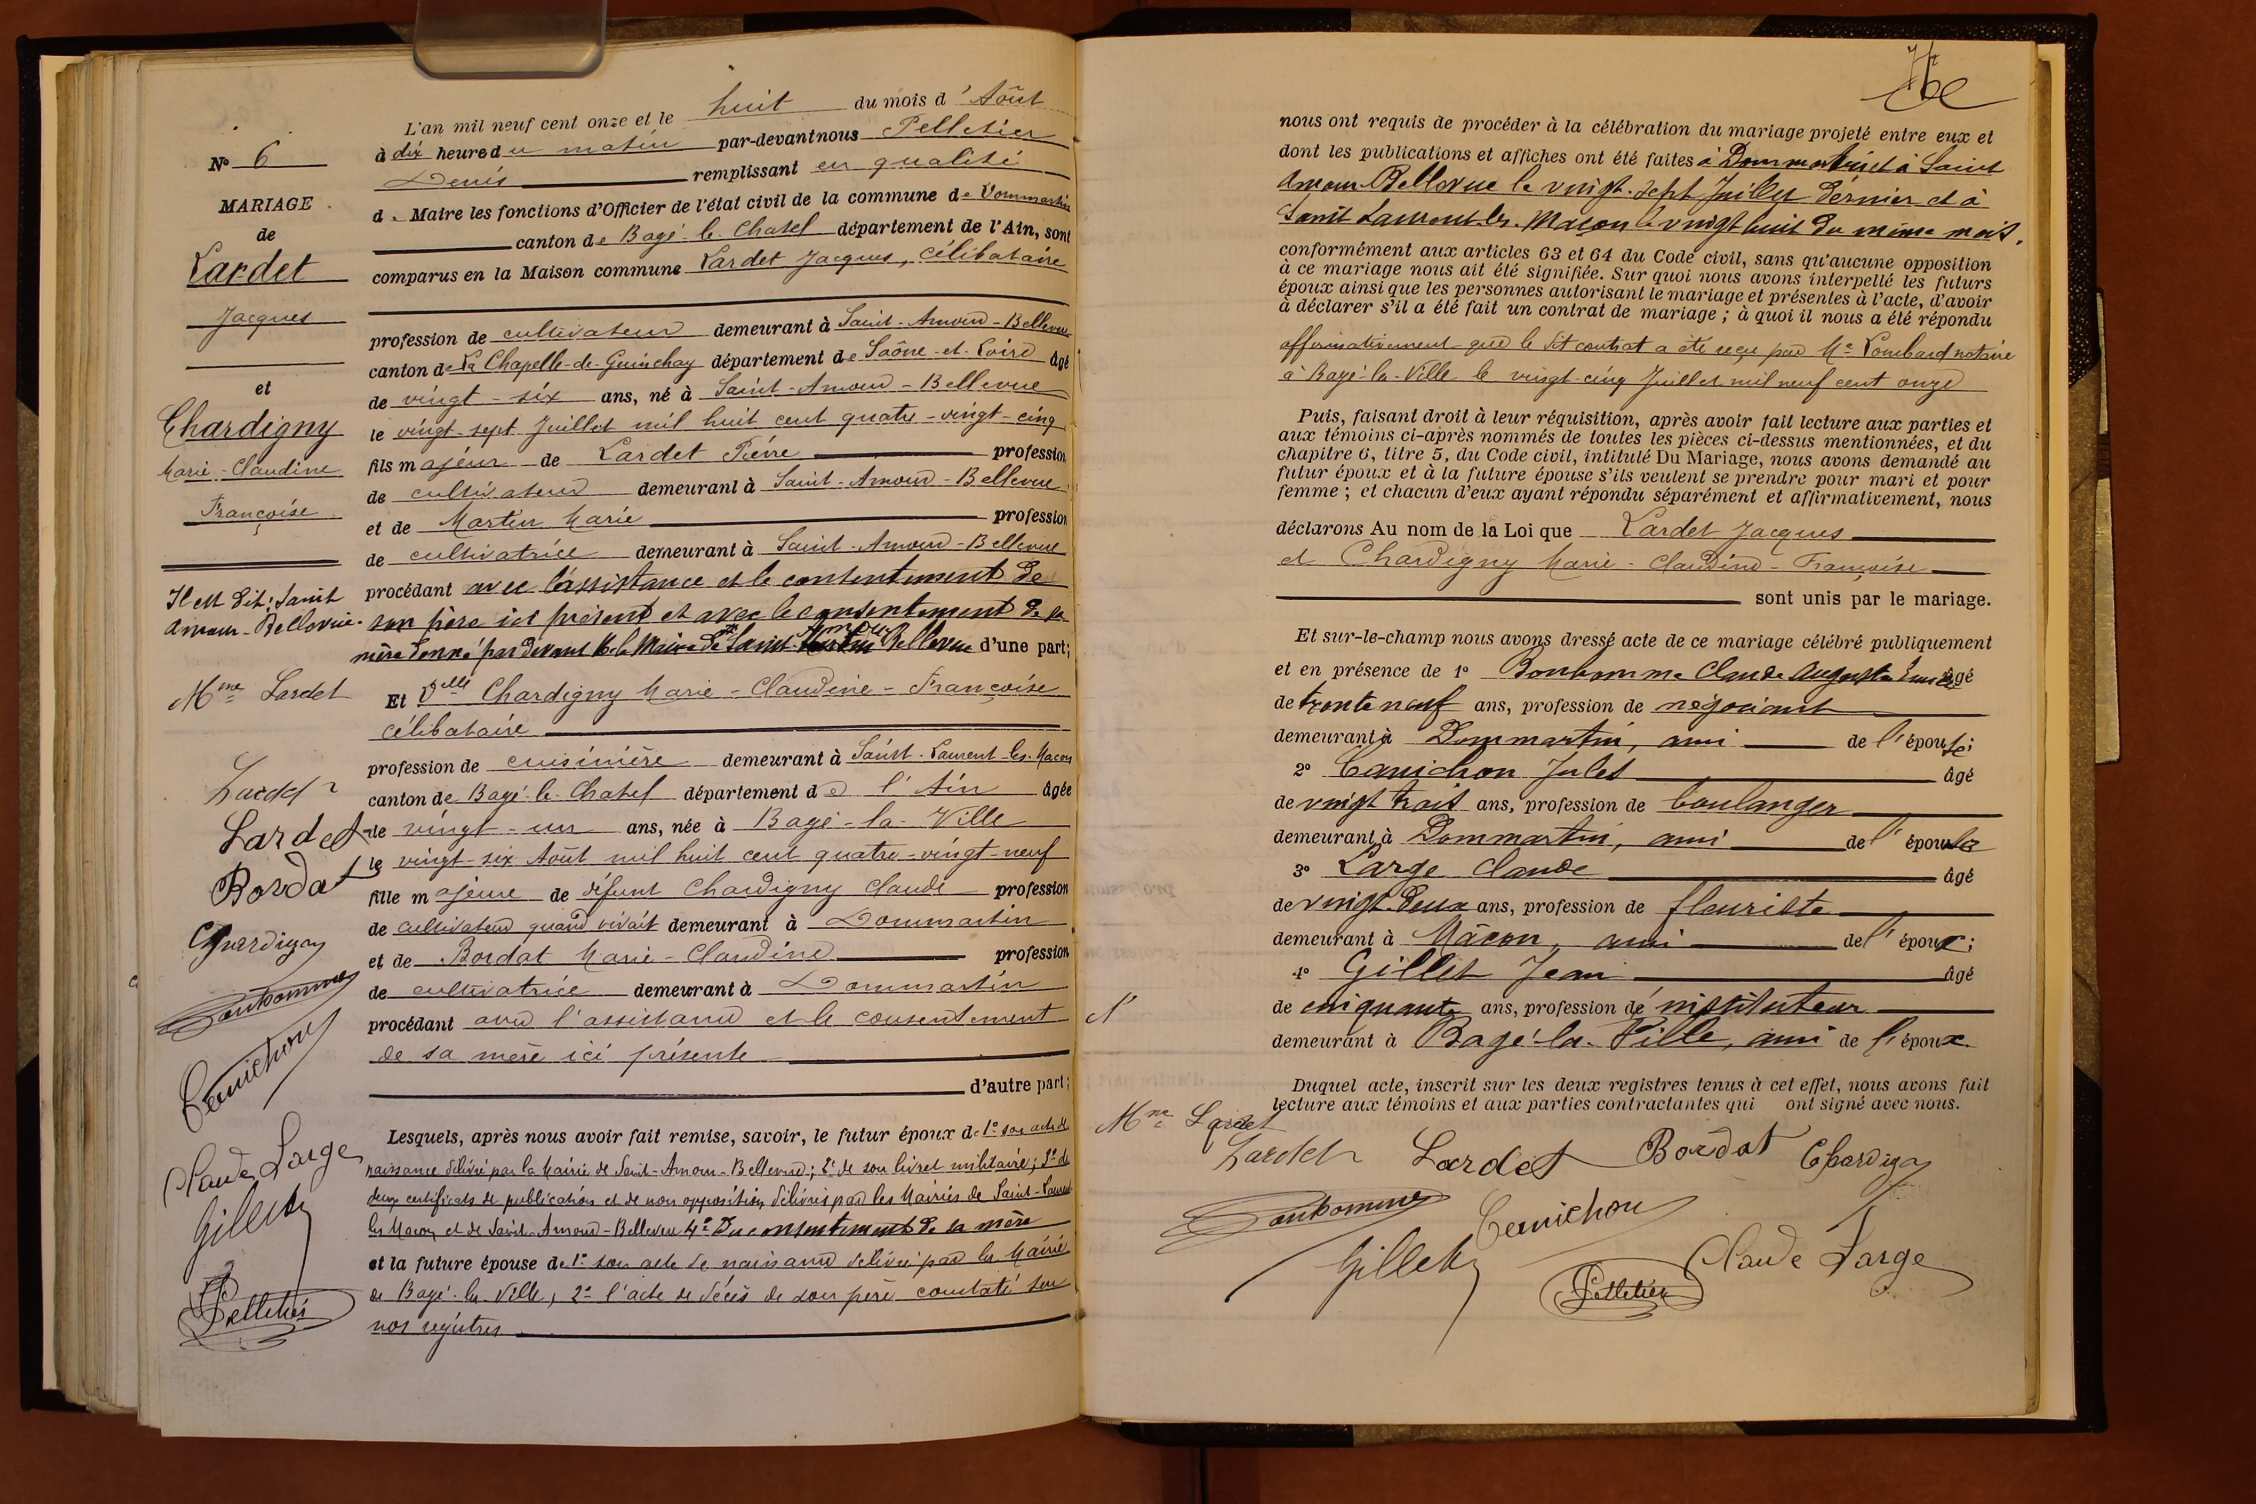 N° 6
MARIAGE
de
Lardet
Jacques
et
Chardigny
Marie-Claudine
Françoise
Il est dit: Saint
Amour-Bellevue.
Mme Lardet
Lardet
Lardet
Bordat
Chardigny
Bonhomme
Cauichon
Claude Large
Gillet
Pelletier
L'an mil neuf cent onze et le huit du mois d'Août
à dix heures du matin par-devant nous Pelletier
Denis remplissant en qualité
de Maire les fonctions d'Officier de l'état civil de la commune de Dommartin
canton de Bagé-le-Chatel département de l'Ain, sont
comparus en la Maison commune Lardet Jacques, célibataire
profession de cultivateur demeurant à Saint-Amour-Bellevue
canton de La Chapelle-de-Guinchay département de Saône-et-Loire âgé
de vingt-six ans, né à Saint-Amour-Bellevue
le vingt-sept Juillet mil huit cent quatre-vingt-cinq
fils majeur de Lardet Pierre profession
de cultivateur demeurant à Saint-Amour-Bellevue
et de Martin Marie profession
de cultivatrice demeurant à Saint-Amour-Bellevue
procédant avec l'assistance et le consentement de
son père ici présent et avec le consentement de sa
mère donné par devant M. le Maire de Saint-Amour Bellevue d'une part;
Et Dlle Chardigny Marie-Claudine-Françoise
célibataire
profession de cuisinière demeurant à Saint-Laurent-les-Macon
canton de Bagé-le-Chatel département de l'Ain âgée
de vingt-un ans, née à Bagé-la-Ville
le vingt-six Août mil huit cent quatre-vingt-neuf
fille majeure de défunt Chardigny Claude profession
de cultivateur quand vivait demeurant à Dommartin
et de Bordat Marie-Claudine profession
de cultivatrice demeurant à Dommartin
procédant avec l'assistance et le consentement
de sa mère ici présente
d'autre part;
Lesquels, après nous avoir fait remise, savoir, le futur époux de 1° son acte de
naissance délivré par la Mairie de Saint-Amour-Bellevue; 2° de son livret militaire; 3° de
deux certificats de publication et de non opposition, délivrés par les Mairies de Saint-Laurent
les Macon et de Saint-Amour-Bellevue 4° Du consentement de sa mère
et la future épouse de 1° son acte de naissance délivré par la Mairie
de Bagé-la-Ville, 2° l'acte de décès de son père constaté sur
nos registres
nous ont requis de procéder à la célébration du mariage projeté entre eux et
dont les publications et affiches ont été faites à Dommartin et à Saint
Amour-Bellevue le vingt-sept Juillet dernier et à
Saint Laurent-les-Macon le vingt huit du même mois.
conformément aux articles 63 et 64 du Code civil, sans qu'aucune opposition
à ce mariage nous ait été signifiée. Sur quoi nous avons interpellé les futurs
époux ainsi que les personnes autorisant le mariage et présentes à l'acte, d'avoir
à déclarer s'il a été fait un contrat de mariage; à quoi il nous a été répondu
affirmativement que le dit contrat a été reçu par Me Lombard notaire
à Bagé-la-Ville le vingt-cinq Juillet mil neuf cent onze
Puis, faisant droit à leur réquisition, après avoir fait lecture aux parties et
aux témoins ci-après nommés de toutes les pièces ci-dessus mentionnées, et du
chapitre 6, titre 5, du Code civil, intitulé Du Mariage, nous avons demandé au
futur époux et à la future épouse s'ils veulent se prendre pour mari et pour
femme; et chacun d'eux ayant répondu séparément et affirmativement, nous
déclarons Au nom de la Loi que Lardet Jacques
et Chardigny Marie-Claudine-Françoise
sont unis par le mariage.
Et sur-le-champ nous avons dressé acte de ce mariage célébré publiquement
et en présence de 1° Bonhomme Claude Auguste âgé
de trente neuf ans, profession de négociant
demeurant à Dommartin, ami de l'épouse;
2° Cauichon Jules âgé
de vingt trois ans, profession de boulanger
demeurant à Dommartin, ami de l'épouse
3° Large Claude âgé
de vingt-deux ans, profession de fleuriste
demeurant à Mâcon, ami de l'époux;
4° Gillet Jean âgé
de cinquante ans, profession d'instituteur
demeurant à Bagé-la-Ville, ami de l'époux
Duquel acte, inscrit sur les deux registres tenus à cet effet, nous avons fait
lecture aux témoins et aux parties contractantes qui ont signé avec nous.
Mme Lardet
Lardet Lardet Bordat Chardigny
Bonhomme Cauichon
Gillet Pelletier Claude Large